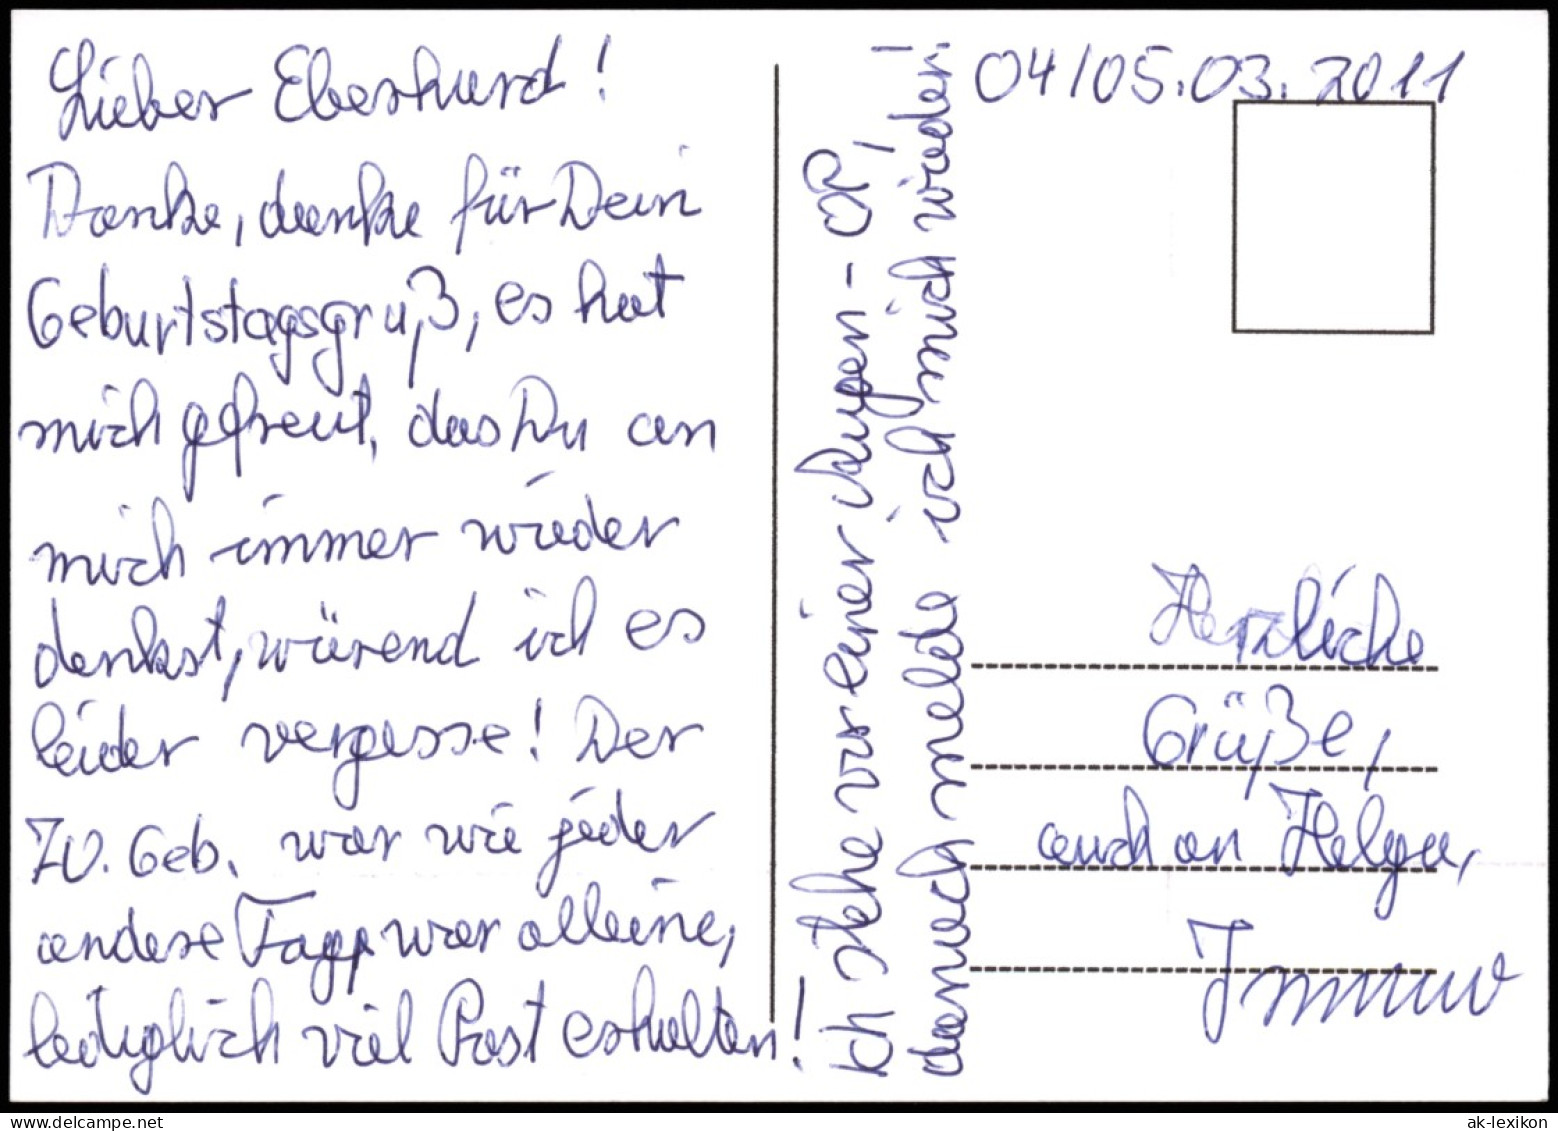 Lieber Eberhard!
Danke, danke für Dein
Geburtstagsgruß, es hat
mich gefreut, das Du an
mich immer wieder
denkst, wärend ich es
leider vergesse! Der
70. Geb. war wie jeder
andere Tag, war alleine,
lediglich viel Post erhalten!
Ich stehe vor einer Augen-OP,
danach melde ich mich wieder!
04/05.03.2011
Herzliche
Grüße,
auch an Helga,
ak-lexikon.com